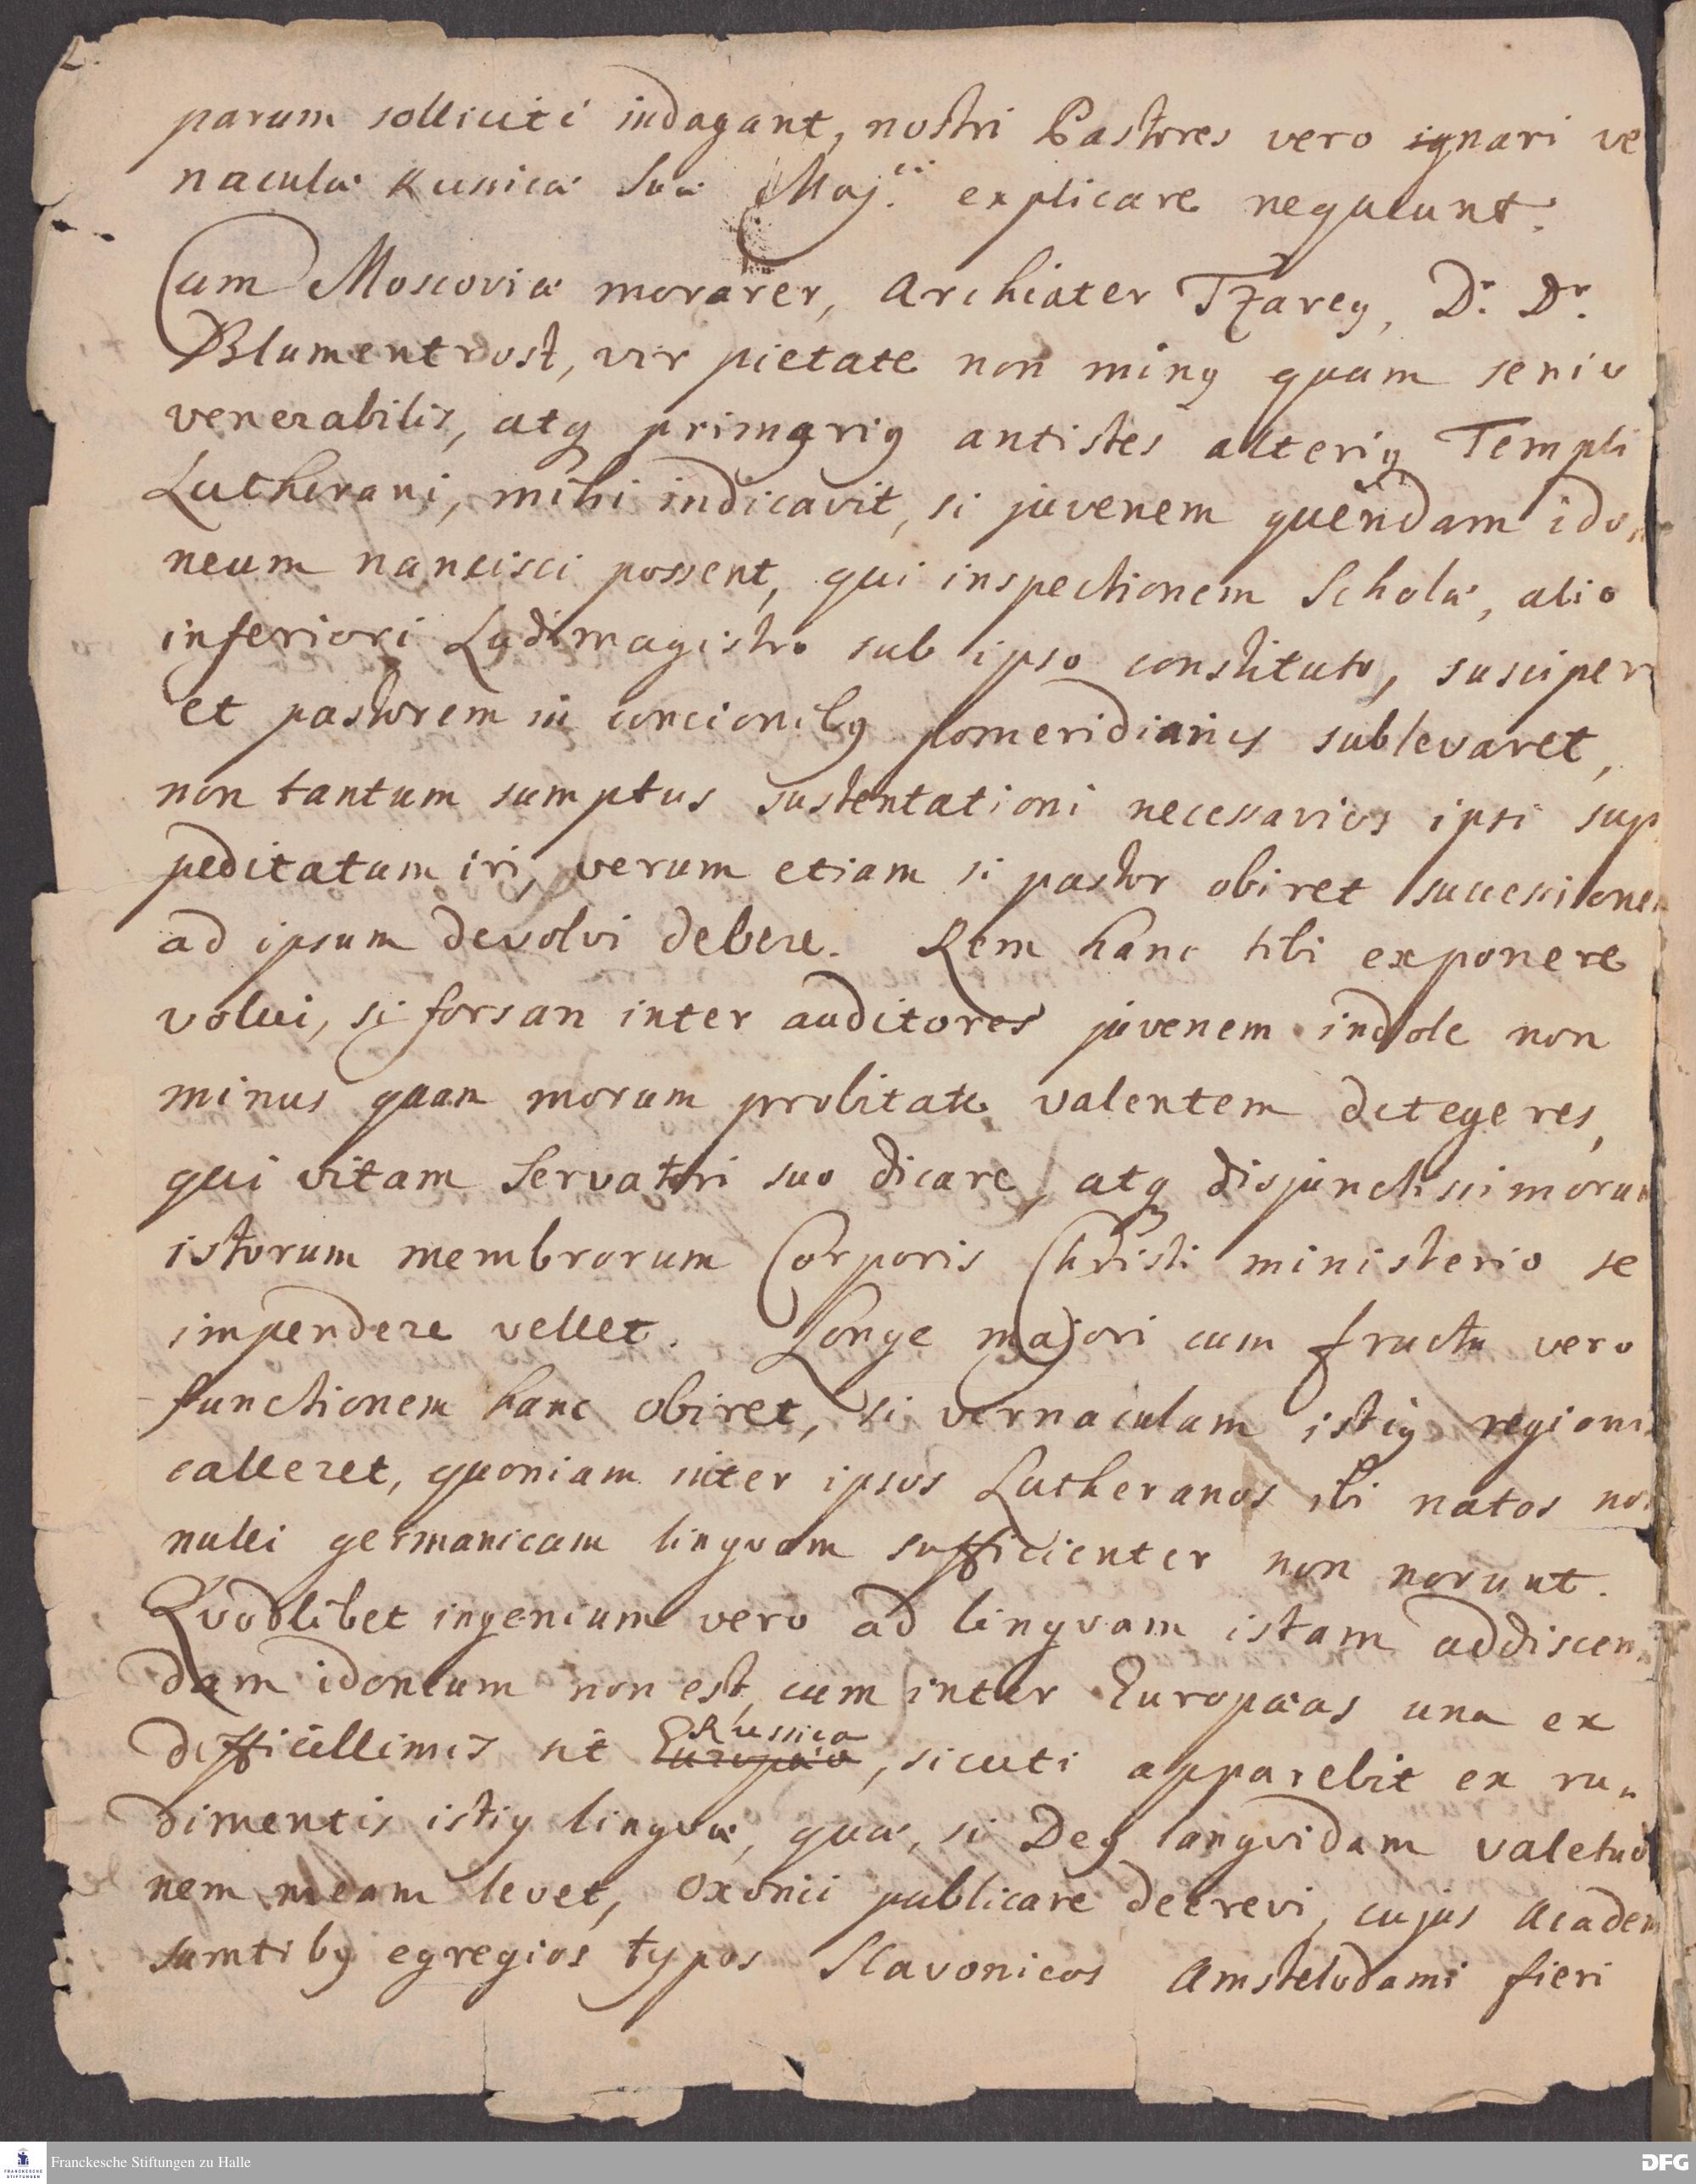 2.
parum solliciti indagant, nostri Pastores vero ignari ve
naculæ Russicæ Suæ Maj.ti explicare nequeunt.
Cum Moscoviæ morarer, Archiater Tzareꝰ, Dr. Dr.
Blumentrost, vir pietate non minꝰ quam senio
venerabilis, atq primariꝰ antistes alteriꝰ Templi
Lutherani, mihi indicavit, si juvenem quendam ido
neum nancisci possent, qui inspectionem Scholæ, alio
inferiori Ludimagistro sub ipso constituto, susciper
et pastorem in concionibꝰ pomeridianis sublevaret,
non tantum sumptus sustentationi necessarios ipsi sup
peditatum iri, verum etiam si pastor obiret successione
ad ipsum devolvi debere. Rem hanc tibi exponere
volui, si forsan inter auditores juvenem indole non
minus quam morum probitate valentem detegeres,
qui vitam Servatori suo dicare, atq disjunctissimorum
istorum membrorum Corporis Christi ministerio se
impendere vellet. Longe majori cum fructu vero
functionem hanc obiret, si vernaculam istiꝰ regionis
calleret, quoniam inter ipsos Lutheranos ibi natos non
nulli germanicam lingvam sufficienter non norunt.
Qvodlibet ingenium vero ad lingvam istam addiscen
dam idoneum non est, cum inter Europæas una ex
difficillimis sit Europæa Russica, sicuti apparebit ex ru
dimentis istiꝰ lingvæ, quæ, si Deꝰ langvidam valetud
nem meam levet, Oxonii publicare decrevi, cujus Academ
sumtibꝰ egregios typos Slavonicos Amstelodami fieri
Franckesche Stiftungen zu Halle
FRANCKESCHE STIFTUNGEN
DFG